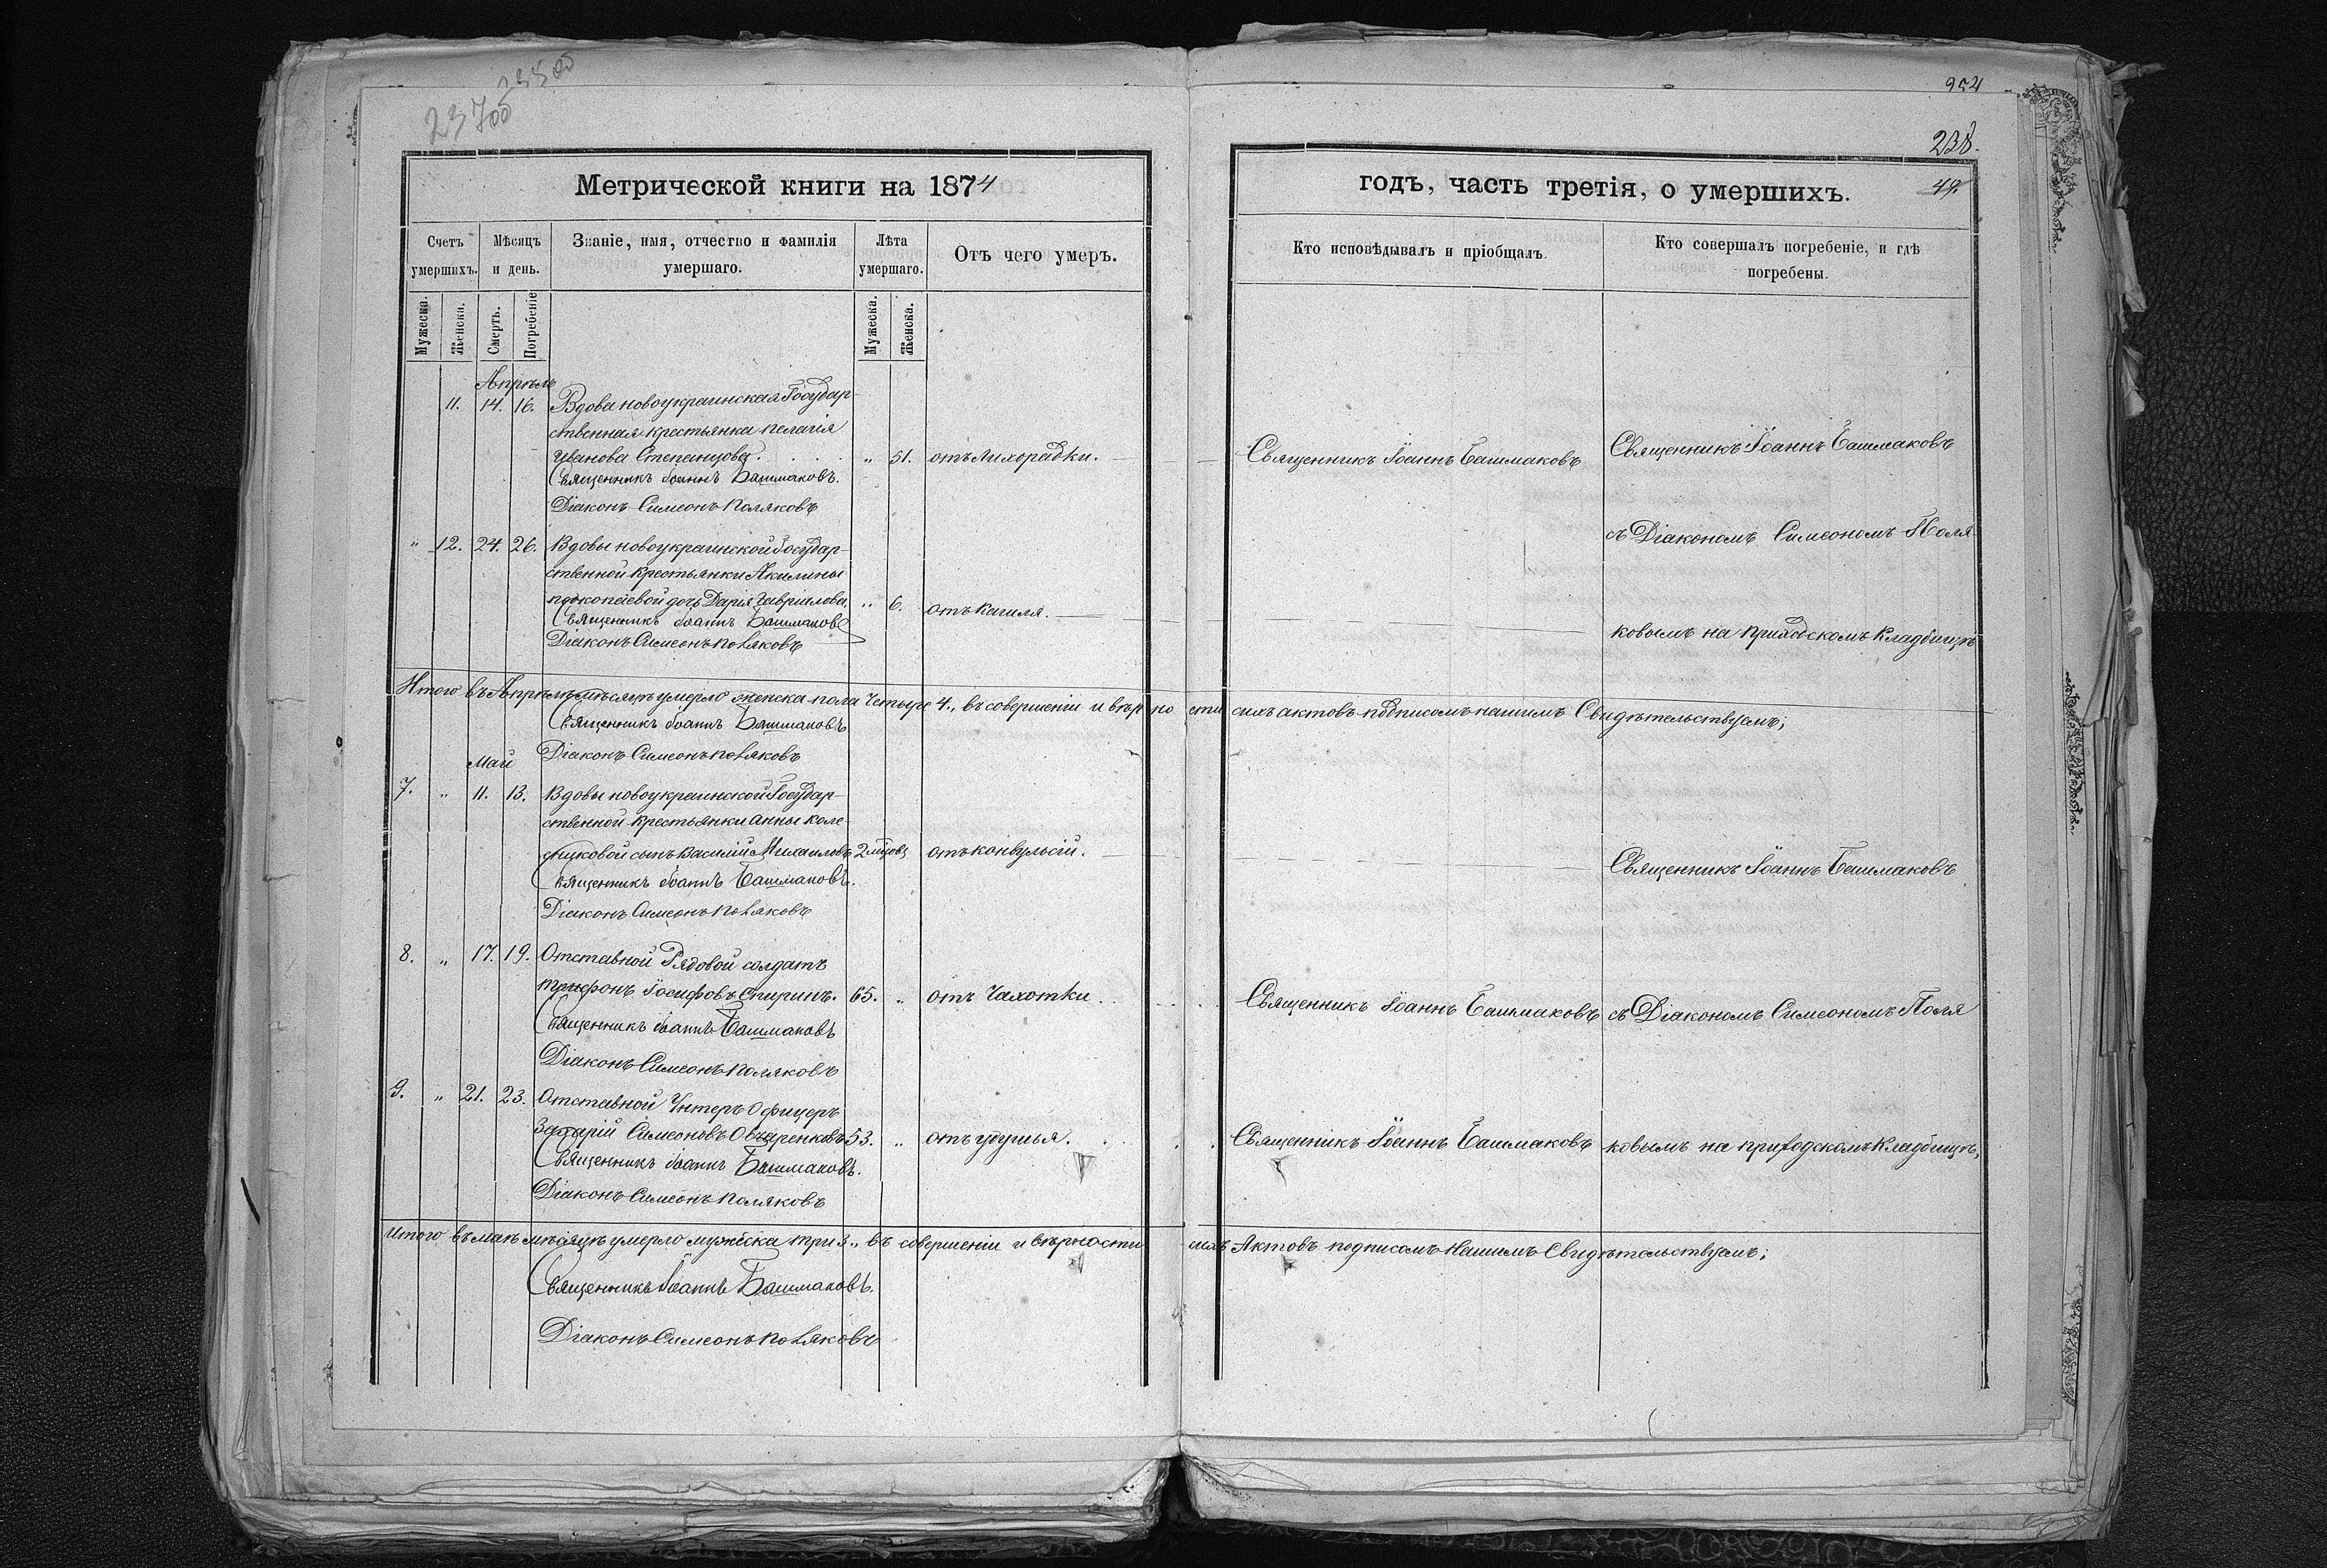 23700
954
238.
49.
Метрической книги на 1874
годъ, часть третія, о умершихъ.
Счетъ умершихъ.
Мѣсяцъ и день.
Званіе, имя, отчество и фамилія умершаго.
Лѣта умершаго.
Отъ чего умеръ.
Кто исповѣдывалъ и пріобщалъ.
Кто совершалъ погребеніе, и гдѣ погребены.
Мужеска.
Женска.
Смерть.
Погребеніе
Мужеска.
Женска.
Апрѣль
11. 14. 16. Вдова новоукраинская Государ-
ственная крестьянка Пелагія
Иванова Степанцова. „ 51. отъ лихорадки. Священникъ Іоаннъ Башмаковъ Священникъ Іоаннъ Башмаковъ
Священникъ Іоаннъ Башмаковъ.
Діаконъ Симеонъ Поляковъ
„ 12. 24. 26. Вдовы новоукраинской Государ- съ Діакономъ Симеономъ Поля
ственной крестьянки Акилины
Прокопіевой дочь Дарія Гавріилова. „ 6. отъ кашля. ковымъ на приходскомъ кладбищѣ
Священникъ Іоаннъ Башмаковъ
Діаконъ Симеонъ Поляковъ
Итого въ Апрѣлѣ мѣсяцѣ умерло женска пола четыре 4., въ совершеніи и вѣрности сихъ актовъ подписомъ нашимъ Свидѣтельствуемъ;
Священникъ Іоаннъ Башмаковъ
Діаконъ Симеонъ Поляковъ
Май
7. „ 11. 13. Вдовы новоукраинской Государ-
ственной крестьянки Анны Коле
сниковой сынъ Василій Михаиловъ 2 мѣсяцовъ отъ конвульсій. Священникъ Іоаннъ Башмаковъ
Священникъ Іоаннъ Башмаковъ.
Діаконъ Симеонъ Поляковъ
8. „ 17. 19. Отставной Рядовой солдатъ
Трифонъ Іосифовъ Спиринъ. 65. „ отъ Чахотки. Священникъ Іоаннъ Башмаковъ съ Діакономъ Симеономъ Поля
Священникъ Іоаннъ Башмаковъ
Діаконъ Симеонъ Поляковъ
9. „ 21. 23. Отставной Унтеръ Офицеръ
Захарій Симеоновъ Овчаренковъ 53. „ отъ удушья. Священникъ Іоаннъ Башмаковъ ковымъ на приходскомъ кладбищѣ,
Священникъ Іоаннъ Башмаковъ.
Діаконъ Симеонъ Поляковъ
Итого въ маѣ мѣсяцѣ умерло мужеска три 3., въ совершеніи и вѣрности сихъ Актовъ подписомъ нашимъ Свидѣтельствуемъ;
Священникъ Іоаннъ Башмаковъ.
Діаконъ Симеонъ Поляковъ